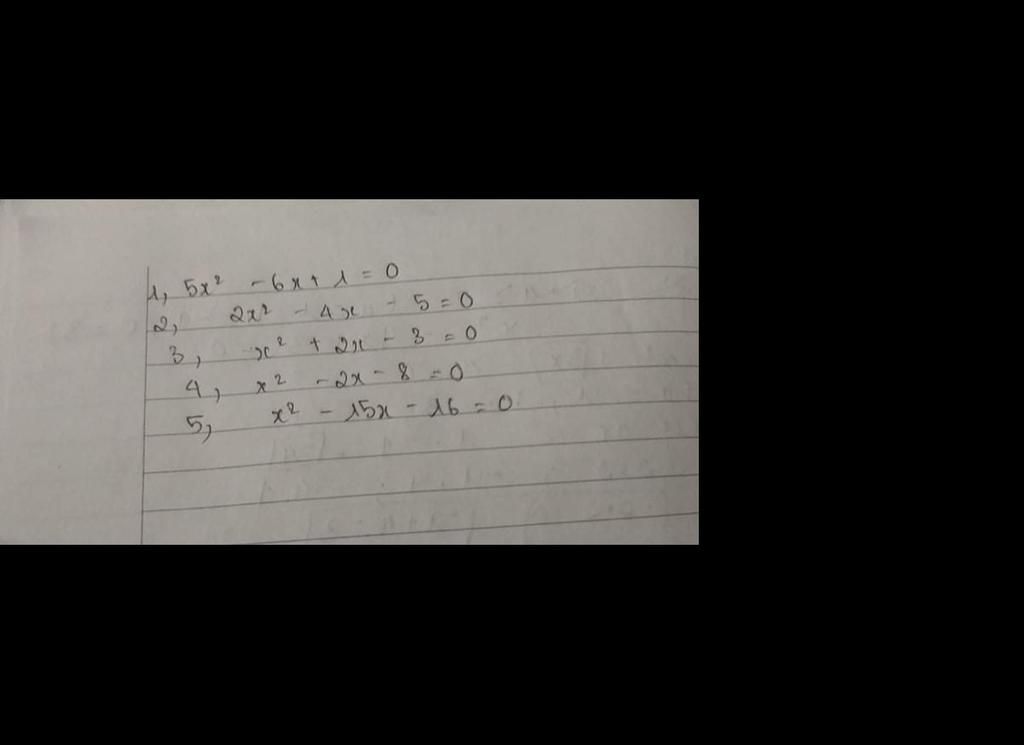 1, 5x² - 6x + 1 = 0
2, 2x² - 4x - 5 = 0
3, x² + 2x - 3 = 0
4, x² - 2x - 8 = 0
5, x² - 15x - 16 = 0